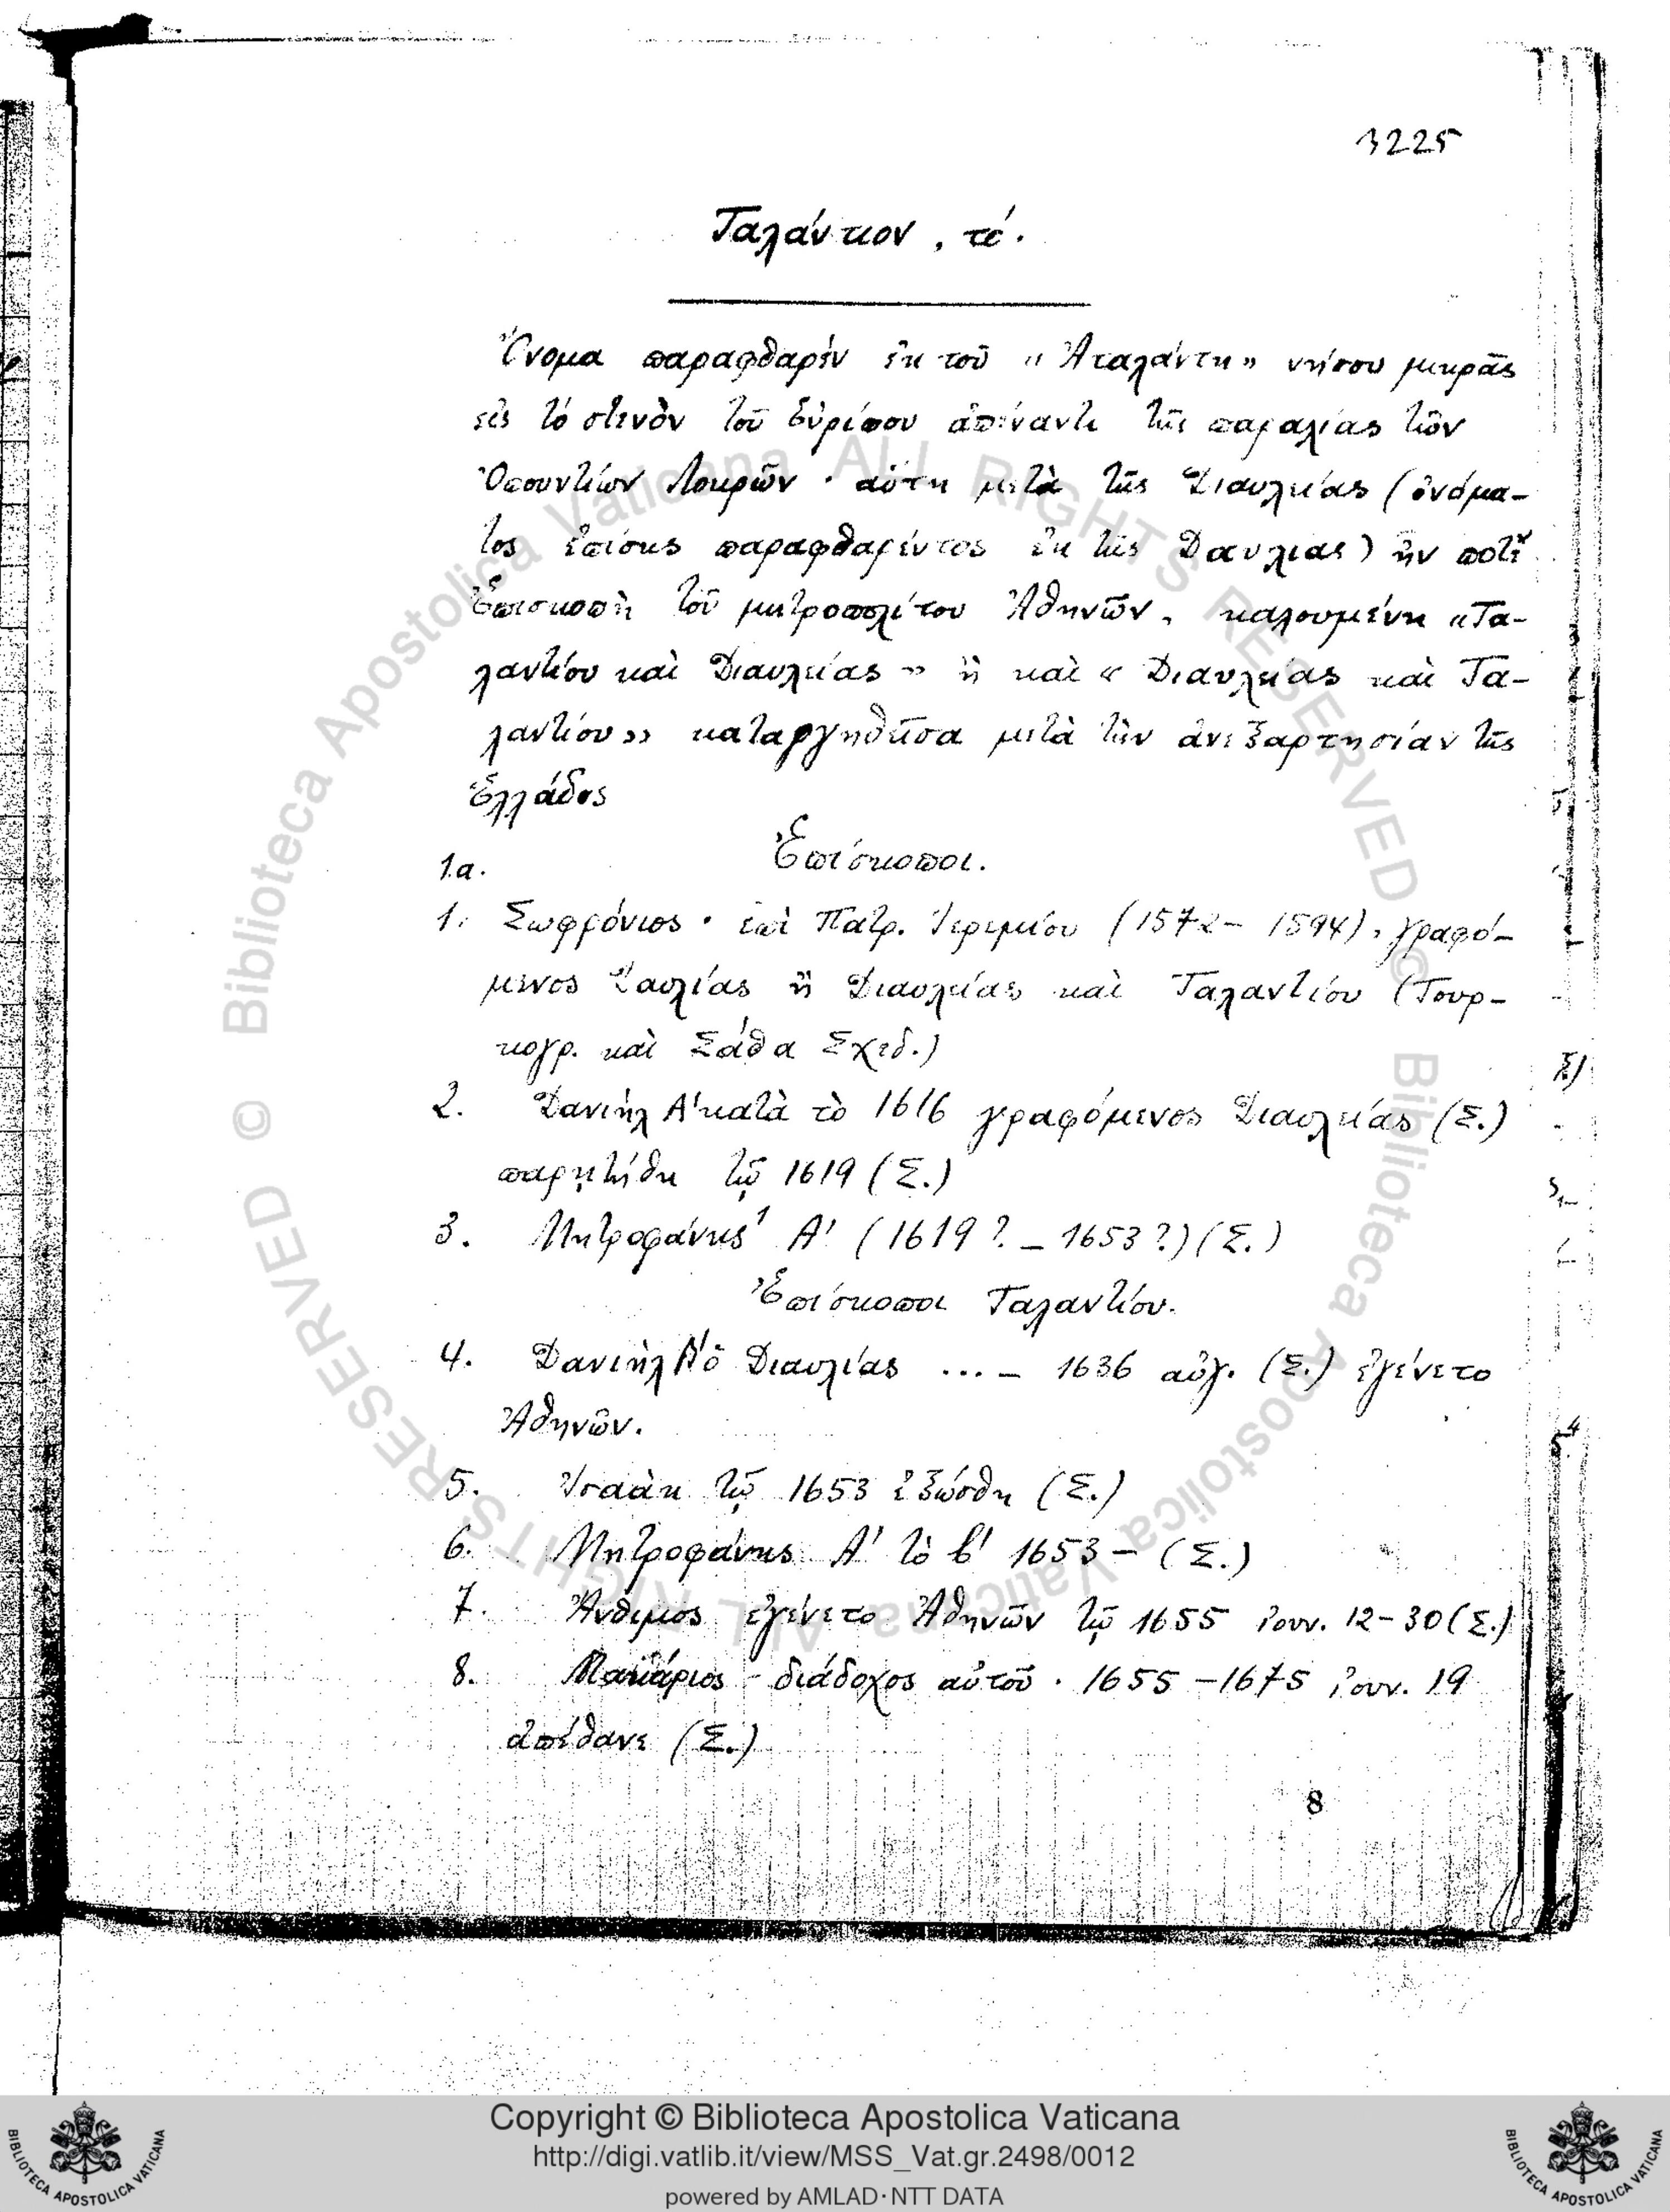 3225
Ταλάντιον, τό.
Ὄνομα παραφθαρὲν ἐκ τοῦ «Ἀταλάντη» νήσου μικρᾶς
εἰς τό στενὸν τοῦ Εὐρίπου ἀπέναντι τῆς παραλίας τῶν
Ὀπουντίων Λοκρῶν · αὕτη μετὰ τῆς Διαυλείας (ὀνόμα-
τος ἐπίσης παραφθαρέντος ἐκ τῆς Δαυλίας) ἦν ποτὲ
Ἐπισκοπὴ τοῦ μητροπολίτου Ἀθηνῶν, καλουμένη «Τα-
λαντίου καὶ Διαυλείας» ἢ καὶ «Διαυλείας καὶ Τα-
λαντίου» καταργηθεῖσα μετὰ τὴν ἀνεξαρτησίαν τῆς
Ἑλλάδος
Ἐπίσκοποι.
1.α.
1. Σωφρόνιος · ἐπὶ Πατρ. Ἱερεμίου (1572 – 1594), γραφό-
μενος Δαυλίας ἢ Διαυλείας καὶ Ταλαντίου (Τουρ-
κογρ. καὶ Σάθα Σχεδ.)
2. Δανιὴλ Α' κατὰ τὸ 1616 γραφόμενος Διαυλείας (Σ.)
παρῃτήθη τῷ 1619 (Σ.)
3. Μητροφάνης¹ Α' (1619 ? – 1653 ?) (Σ.)
Ἐπίσκοποι Ταλαντίου.
4. Δανιὴλ Α' ὁ Διαυλίας ... – 1636 αὐγ. (Σ.) ἐγένετο
Ἀθηνῶν.
5. Ἰσαὰκ τῷ 1653 ἐξώσθη (Σ.)
6. Μητροφάνης Α' τὸ β' 1653 – (Σ.)
7. Ἄνθιμος ἐγένετο Ἀθηνῶν τῷ 1655 ἰουν. 12 – 30 (Σ.)
8. Μακάριος – διάδοχος αὐτοῦ · 1655 – 1675 ἰουν. 19
ἀπέθανε (Σ.)
8
© Biblioteca Apostolica Vaticana ALL RIGHTS RESERVED
© Biblioteca Apostolica Vaticana ALL RIGHTS RESERVED
Copyright © Biblioteca Apostolica Vaticana
http://digi.vatlib.it/view/MSS_Vat.gr.2498/0012
powered by AMLAD·NTT DATA
BIBLIOTECA APOSTOLICA VATICANA
BIBLIOTECA APOSTOLICA VATICANA